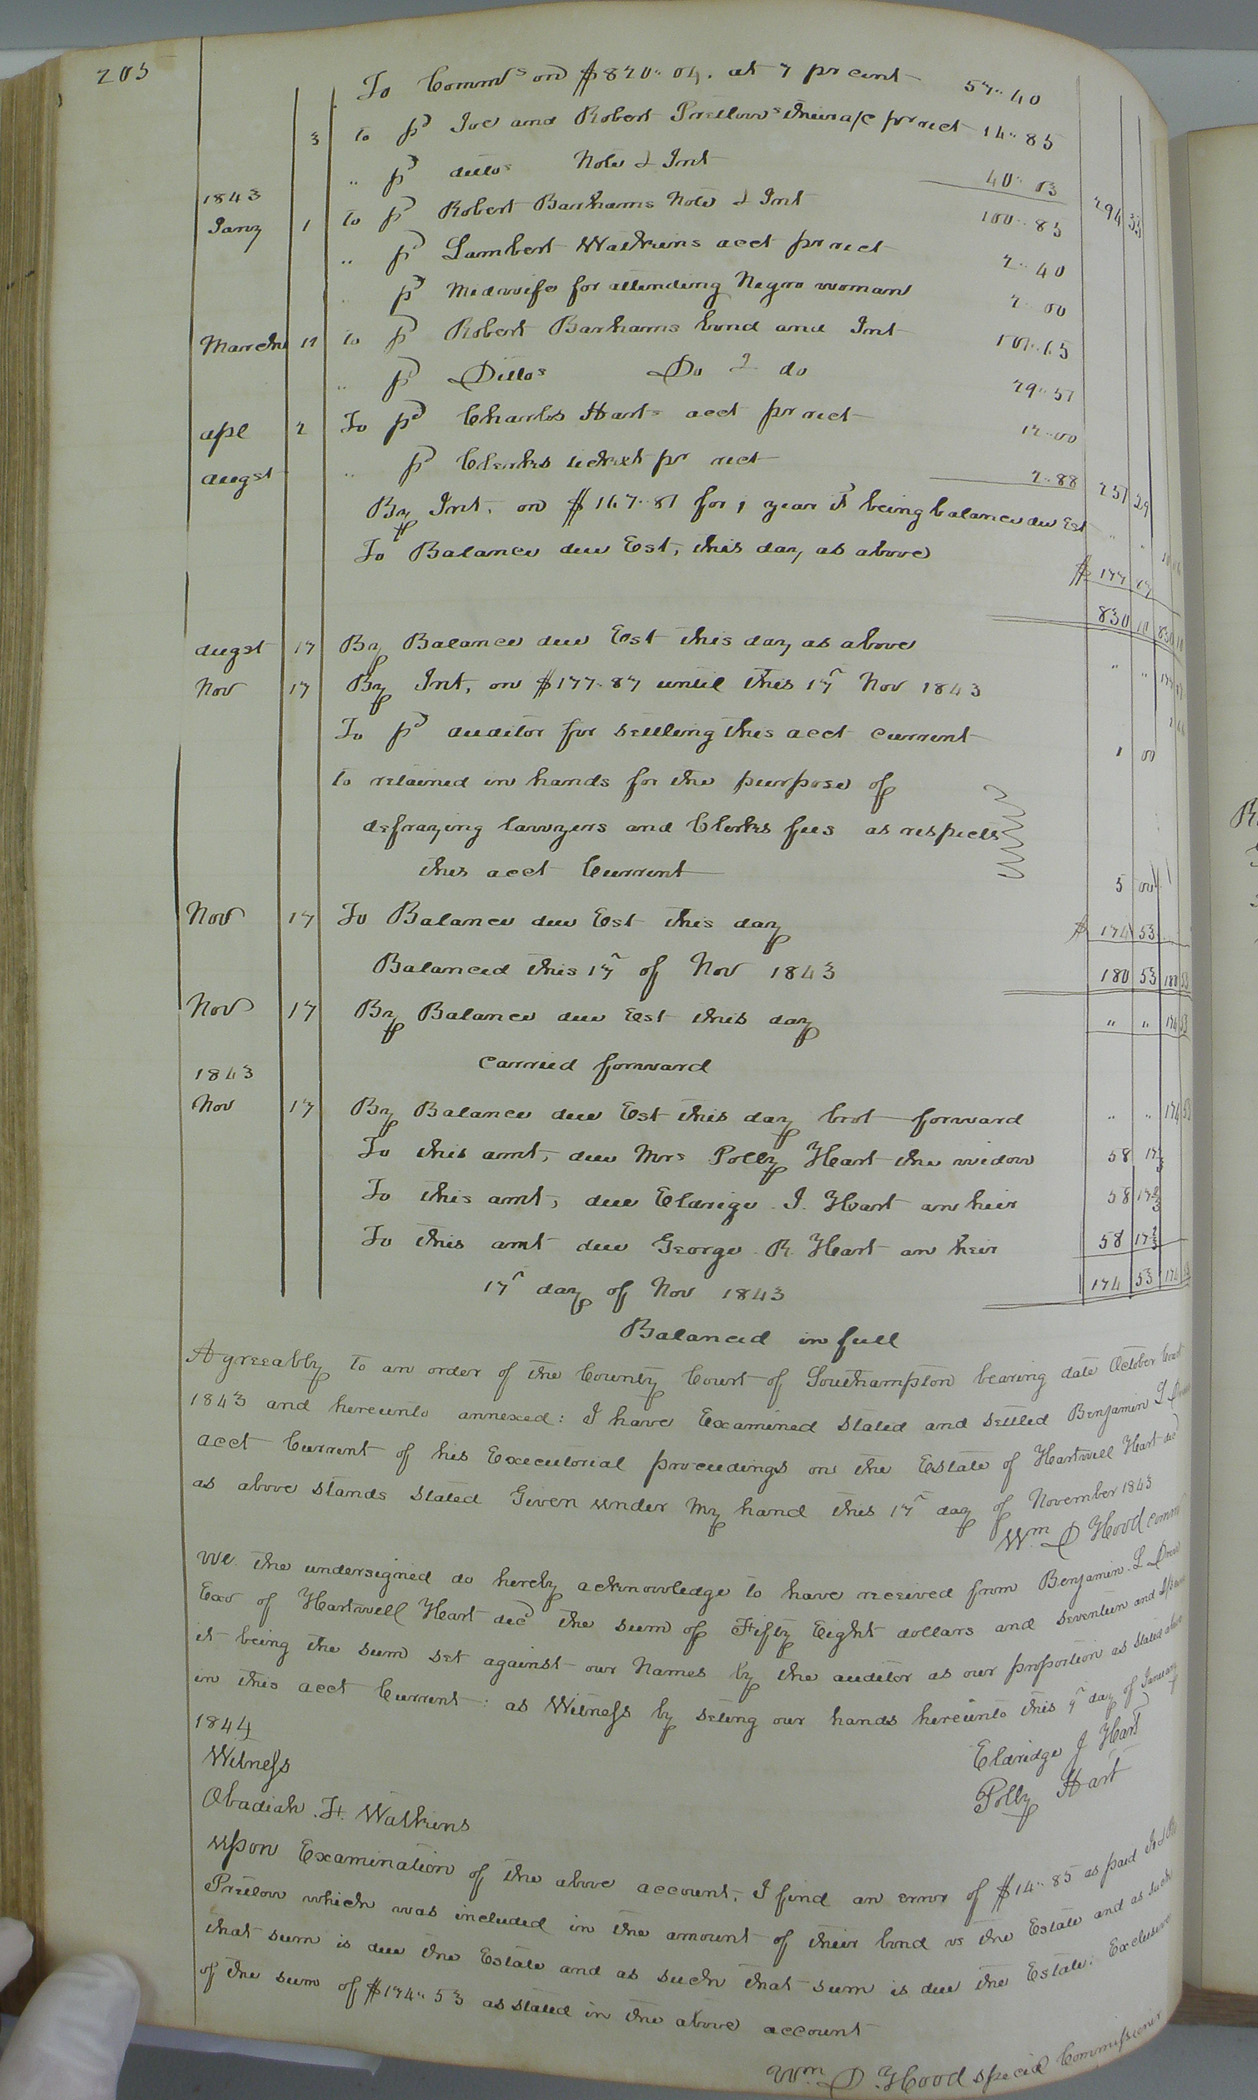 203
To Comms on $820.. 04. at 7 pr cent 57.. 40
3 to pd Joe and Robert Pretlow's their a/c pr rect 14.. 85
.. pd dittos Note & Int 40.. 03 294 33
1843
Jany 1 to pd Robert Barhams Note & Int 100.. 83
.. pd Lambert Watkins acct pr rect 2.. 40
pd Midwife for attending Negro woman 2.. 00
March 11 to pd Robert Barhams bond and Int 101.. 65
.. pd Dittos Do & do 29.. 57
apl 2 To pd Charles Harts acct pr rect 12.. 00
augst .. pd Clerks ticket pr rect 2.. 88 251 29
By Int. on $167.. 81 for 1 year it being balance due Est
To Balance due Est, this day as above $ 177 87
830 10 830 10
augst 17 By Balance due Est this day as above
Nov 17 By Int, on $177.87 until this 17th Nov 1843
To pd auditor for settling this acct current 1 00
to retained in hands for the purpose of
defraying lawyers and Clerks fees as respects
this acct Current 5 00
Nov 17 To Balance due Est this day $ 174 53
Balanced this 17th of Nov 1843 180 53 180 53
Nov 17 By Balance due Est this day " " 174 53
carried forward
1843
Nov 17 By Balance due Est this day brot forward " " 174 53
To this amt, due Mrs Polly Heart the widow 58 17 2/3
To this amt, due Eldrige J. Heart an heir 58 17 2/3
To this amt due George R. Heart an heir 58 17 2/3
17th day of Nov 1843 174 53 174 53
Balanced in full
Agreeably to an order of the County Court of Southampton bearing date October Court
1843 and hereunto annexed: I have Examined stated and settled Benjamin L Drew
acct Current of his Executorial proceedings on the Estate of Hartwell Heart decd
as above stands stated Given under my hand this 17th day of November 1843
Wm D Hood comm
We the undersigned do hereby acknowledge to have received from Benjamin L Drew
Exr of Hartwell Heart decd the sum of Fifty Eight dollars and seventeen and
it being the sum set against our Names by the auditor as our proportion as stated above
in this acct Current: as Witness by seting our hands hereunto this 9th day of January
1844
Witness
Eldridge J Hart
Polly Hart
Obadiah H. Watkins
upon Examination of the above account, I find an error of $14.. 85 as paid J & R
Pretlow which was included in the amount of their bond vs the Estate and as such
that sum is due the Estate and as such that sum is due the Estate: Exclusive
of the sum of $174.. 53 as stated in the above account
Wm D. Hood special Commissioner